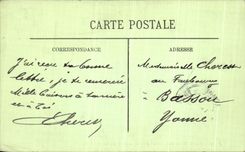 CARTE POSTALE
CORRESPONDANCE
ADRESSE
J'ai reçu ta bonne
lettre, je te remercie
Mille baisers à ta
et à toi
Mademoiselle
au Faubourg
à Bassou
Yonne